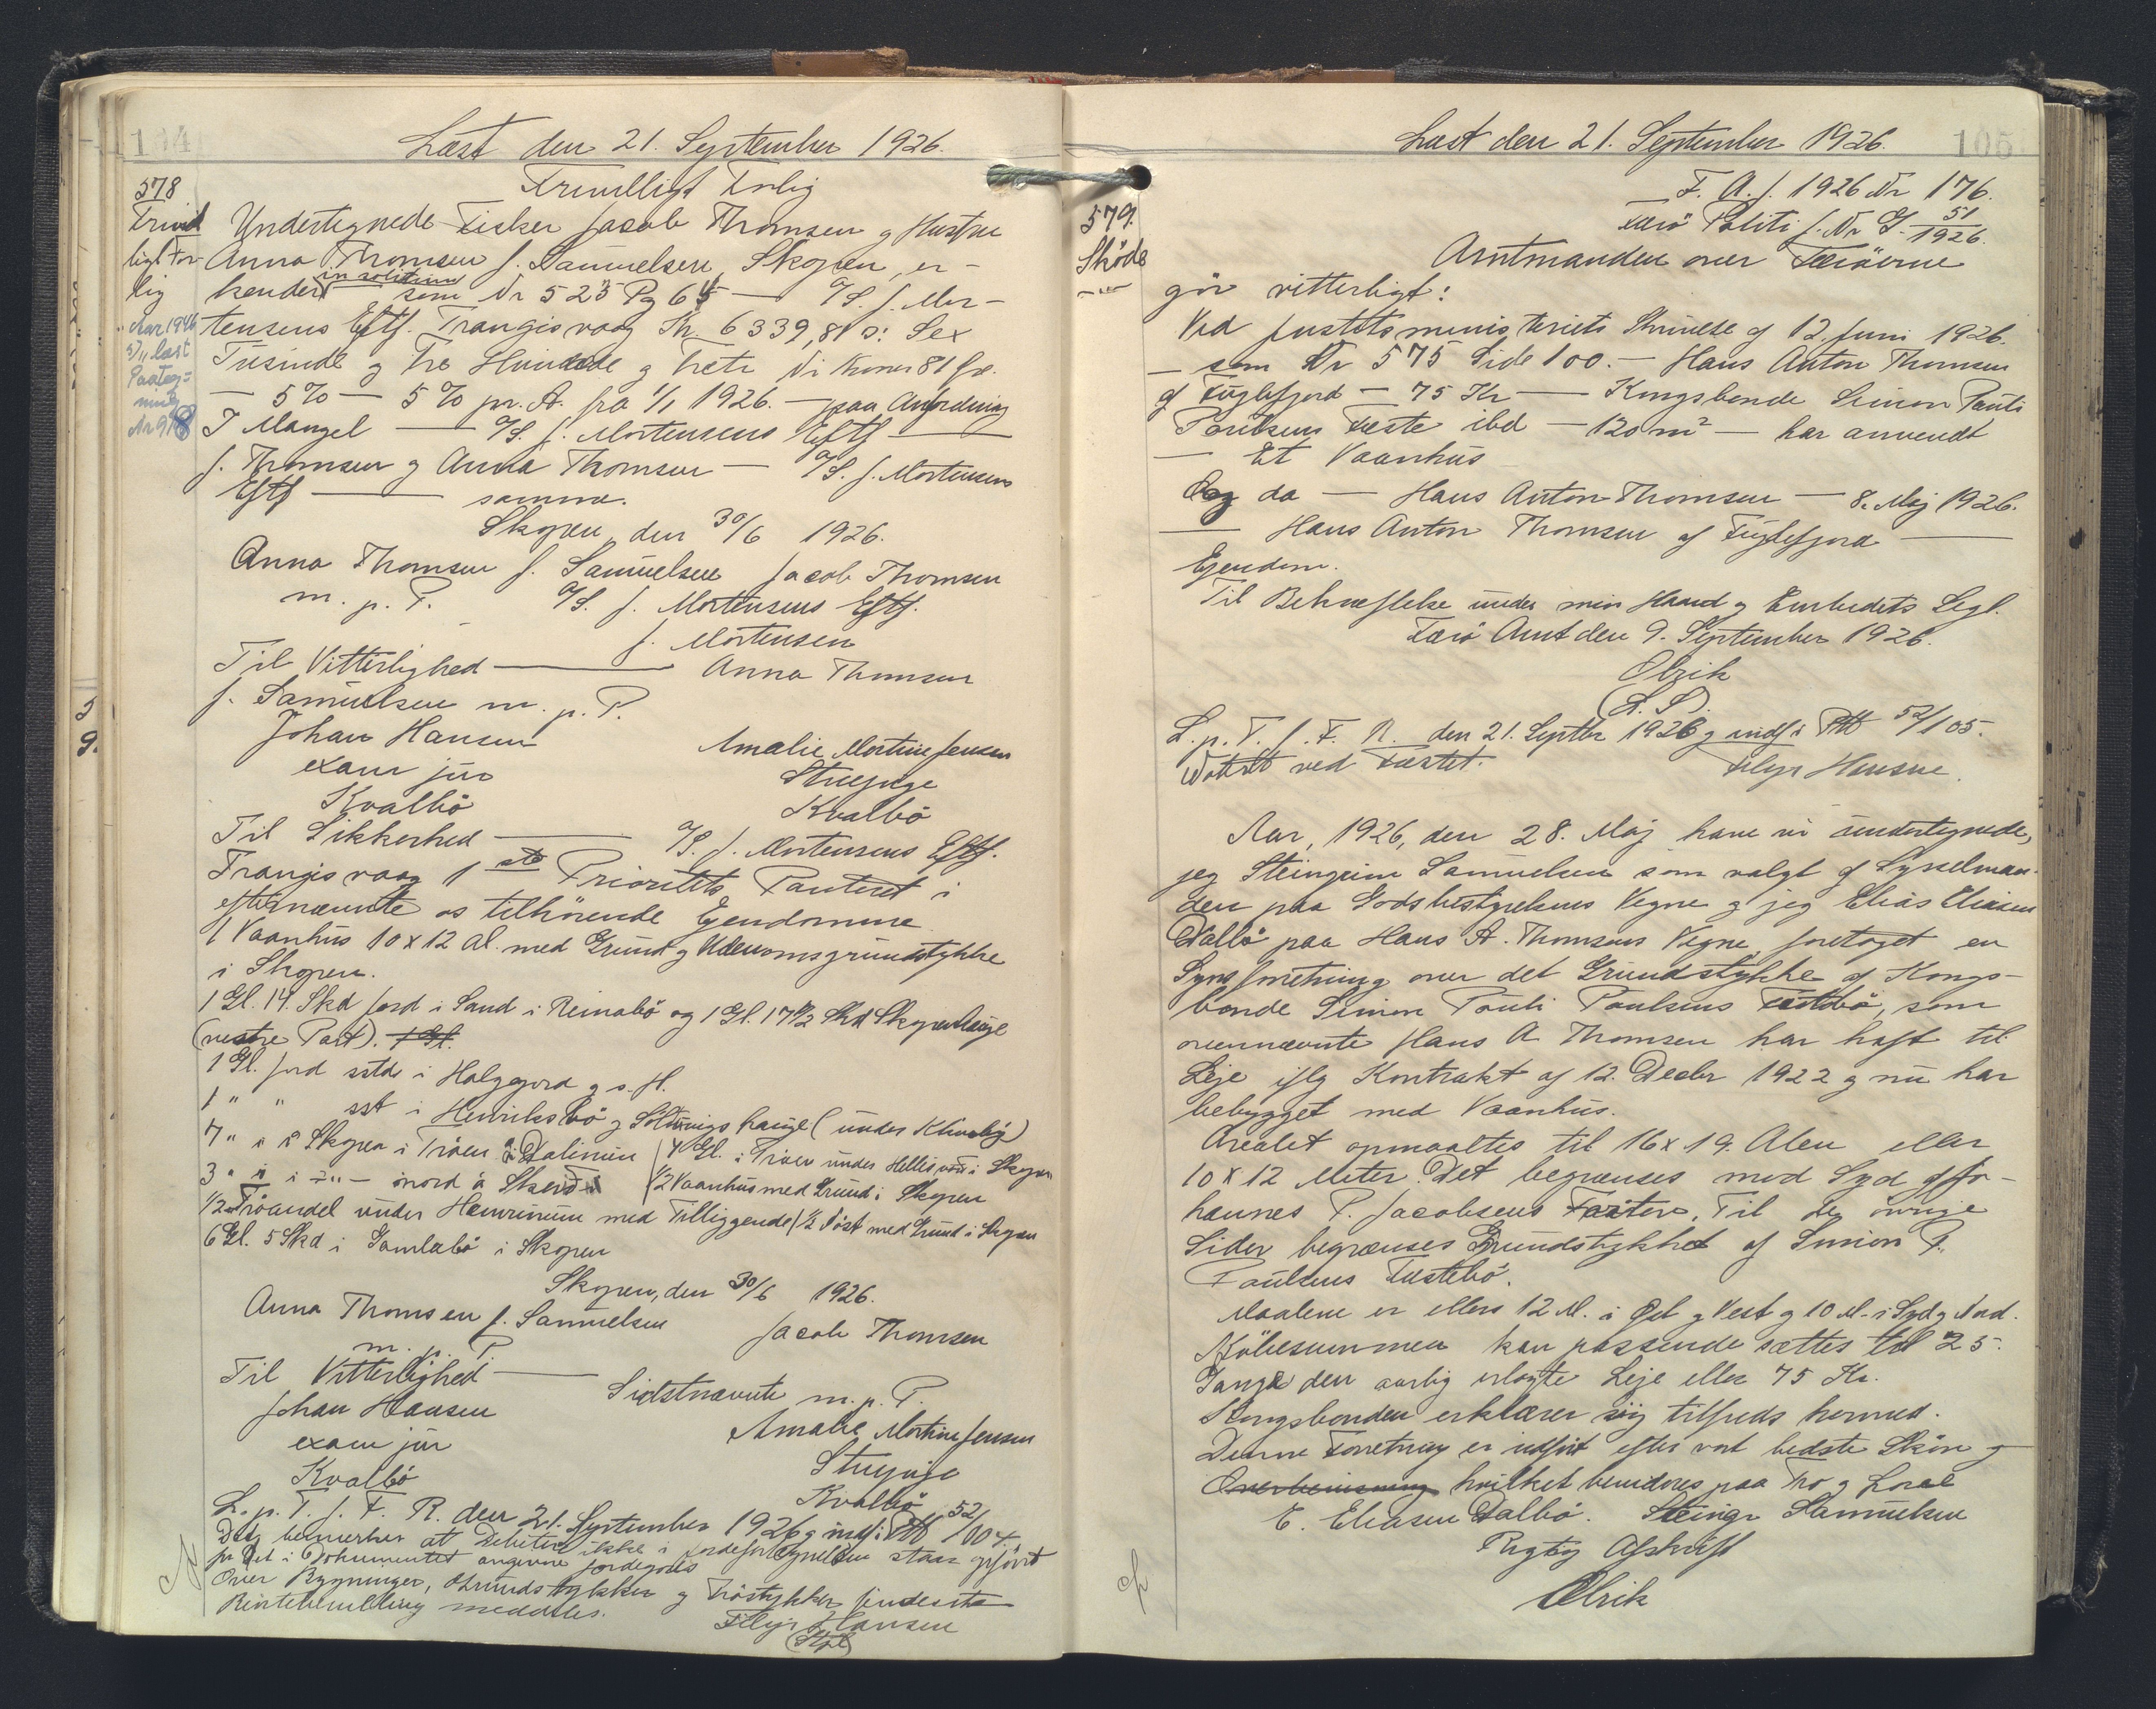 104
Læst den 21. September 1926.
Frivilligt Forlig
578
Frivil
ligt For-
lig
Undertegnede Fisker Jacob Thomsen og Hustru
Anna Thomsen f. Samuelsen, Skopen, er-
kender in solidum som Nr 525 Pg 65 — A/S. J. Mor-
tensens Eftf. Trangisvaag Kr. 6339,81 ɔ: Sex
Tusinde og Tre Hundrede og Treti Ni Kroner 81 Øre.
— 5% — 5% pr. A. fra 1/1 1926. — paa Anfordring
I Mangel — A/S. J. Mortensens Eftf —
J. Thomsen og Anna Thomsen — A/S. J. Mortensens
Eftf — samme.
Aar 1946
læst
Paateg=
ning
Nr 918
Skopen, den 30/6 1926.
Anna Thomsen f. Samuelsen Jacob Thomsen
m. p. P. A/S. J. Mortensens Eftf.
J. Mortensen
Til Vitterlighed — Anna Thomsen
f. Samuelsen m. p. P.
Johan Hansen Amalie Mortine Jensen
exam jur Stuepige
Kvalbö Kvalbö
Til Sikkerhed — A/S. J. Mortensens Eftf.
Trangisvaag 1ste Prioritets Panteret i
efternævnte os tilhörende Ejendomme
1 Vaanhus 10 x 12 Al. med Grund og Udenomsgrundstykke
i Skopen.
1 Gl. 14. Skd Jord i Sand i Reinabö og 1 Gl. 17 1/2 Skd Skopenhauge
(vestre Part). 1 Gl.
1 Gl. Jord sstds i Halgegjord og s. H.
1 " " sst i Henriksbö og Söltuvings hauge (under Klivalöj)
7 " " i Skopen i Tröen á Dalinum / 4 Gl. i Tröen under Hellisvod i Skopen
3 " " i - " - inord á Skerd / 1/2 Vaanhus med Grund i Skopen
1/2 Tröandel under Hamrinum med Tilliggende / 1/2 Nöst med Grund i Skopen
6 Gl. 5 Skd i Gamlabö i Skopen
Skopen, den 30/6 1926.
Anna Thomsen f. Samuelsen Jacob Thomsen
m. p. P.
Til Vitterlighed — Sidstnævnte m. p. P.
Johan Hansen Amalie Mortine Jensen
exam jur Stuepige
Kvalbö Kvalbö
L. p. T. f. F. R. den 21. September 1926 og indf. i Ptb 52/104.
Dog bemærkes at Debitor ikke i Jordefortegnelsen staar opfört
for det i Dokumentet angivne Jordegods
Over Bygninger, Grundstykker og Tröstykker findes ikke
Realregister meddeles.
Filip Hansen
(Stpl)
105
Læst den 21. September 1926.
F. A. J. 1926 Nr 176.
Færö Politi J. Nr G. 51/1926.
579.
Sköde
Amtmanden over Færöerne
gör vitterligt:
Ved Justitsministeriets Skrivelse af 12. Juni 1926.
— som Nr 575 Side 100. — Hans Anton Thomsen
af Fuglefjord — 75 Kr — Kongsbonde Simon Pauli
Poulsens Fæste ibd — 120 m² — har anvendt
— Et Vaanhus
Og da — Hans Anton Thomsen — 8. Maj 1926.
— Hans Anton Thomsen af Fuglefjord —
Ejendom.
Til Bekræftelse under min Haand og Embedets Segl.
Færö Amt den 9. September 1926.
Olrik
(L. S).
L. p. T. f. F. R. den 21. Septbr 1926 og indf. i Ptb 52/105.
Noteret ved Fæstet. Filip Hansen.
Aar, 1926, den 28. Maj have vi undertegnede,
jeg Steingrim Samuelsen som valgt af Sysselman-
den paa Godsbestyrelsens Vegne og jeg Elias Eliasen
Dalbö paa Hans A. Thomsens Vegne, foretaget en
Synsforretning over det Grundstykke af Kongs-
bonde Simon Pauli Poulsens Fæstebö, som
ovennævnte Hans A Thomsen har haft til
Leje iflg Kontrakt af 12. Decbr 1922 og nu har
bebygget med Vaanhus.
Arealet opmaaltes til 16 x 19. Alen eller
10 x 12 Meter. Det begrænses mod Syd af Jo-
hannes P. Jacobsens Fæstebö. Til de övrige
Sider begrænses Grundstykket af Simon P.
Poulsens Fæstebö.
Maalene er ellers 12 M. i Öst og Vest og 10 M. i Syd og Nord.
Köbesummen kan passende sættes til 25
Gange den aarlig erlagte Leje eller 75 Kr.
Kongsbonden erklærer sig tilfreds hermed.
Denne Forretning er udfört efter vort bedste Skön og
Overbevisning hvilket bevidnes paa Tro og Love
E. Eliasen Dalbö. Steingr Samuelsen
Rigtig Afskrift
Olrik